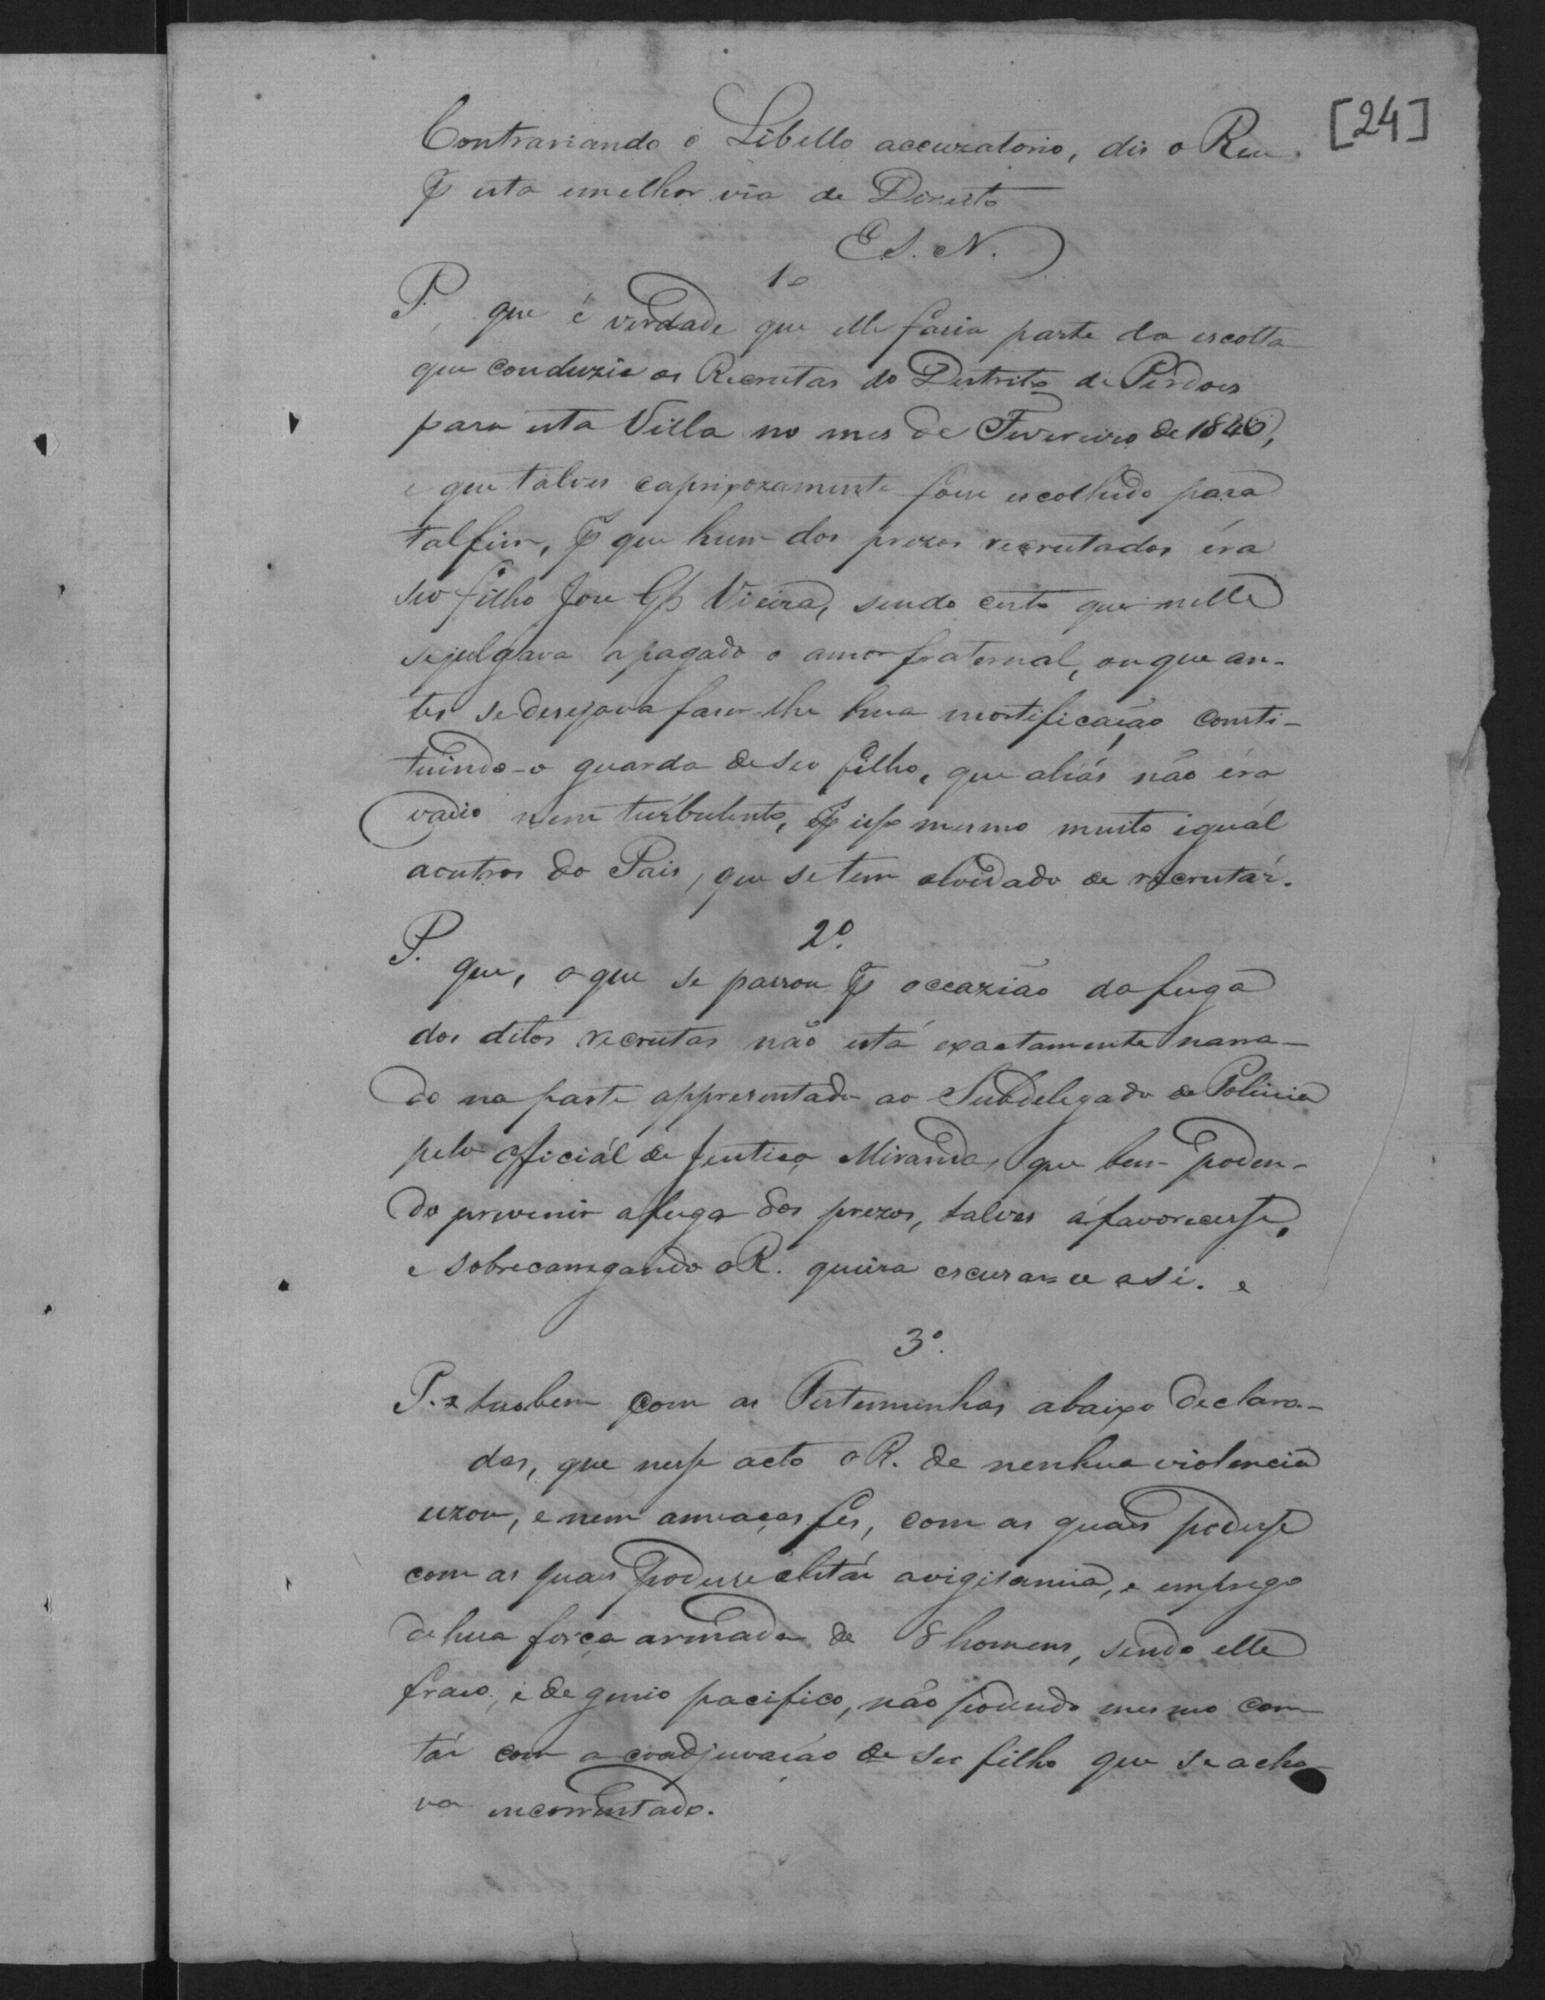 [24]
Contrariando o Libello accuzatorio, dis o Reu
P esta emelhor via de Direito
E S. N.
1º
P. que é verdade que elle fasia parte da escolta
que conduzio os Recrutas do Destrito de Perdoes
para esta Villa no mes de Fevereiro de 1846,
e que talves caprixozamente fosse escolhido para
talfim, P que hum dos prezos recrutados éra
seo filho Jose Vieira, sendo certo que nelle
sejulgava apagado o amor fraternal, ouque an-
tes sedesejava faser-lhe hua mortificação consti-
tuindo-o guarda deseo filho, que aliás não éra
vadio nem turbulento, P isso mesmo muito iguál
aoutros do Pais, que setem olvidado de recrutár.
2º.
P. que, oque se passou P occazião dafuga
dos ditos recrutas não está exactamente narra-
do na parte appresentada ao Subdelegado de Policia
pelo officiál de Justiça Miranda, que bem poden-
do prevenir afuga dos prezos, talves áfavorecesse,
e sobrecarregando oR. queira escusar=se asi. e
3º.
P. tambem com as Testemunhas abaixo declara-
das, que nesse acto oR. de nenhua violencia
uzou, e nem ameaças fes, com as quaes podesse
com as quaes podesse elutár avigilancia, e emprego
dehua força armada de 8 homens, sendo elle
fraco, e de genio pacifico, não podendo mesmo con
tár com a coadjuvação de seo filho que se acha
va incorrentado.